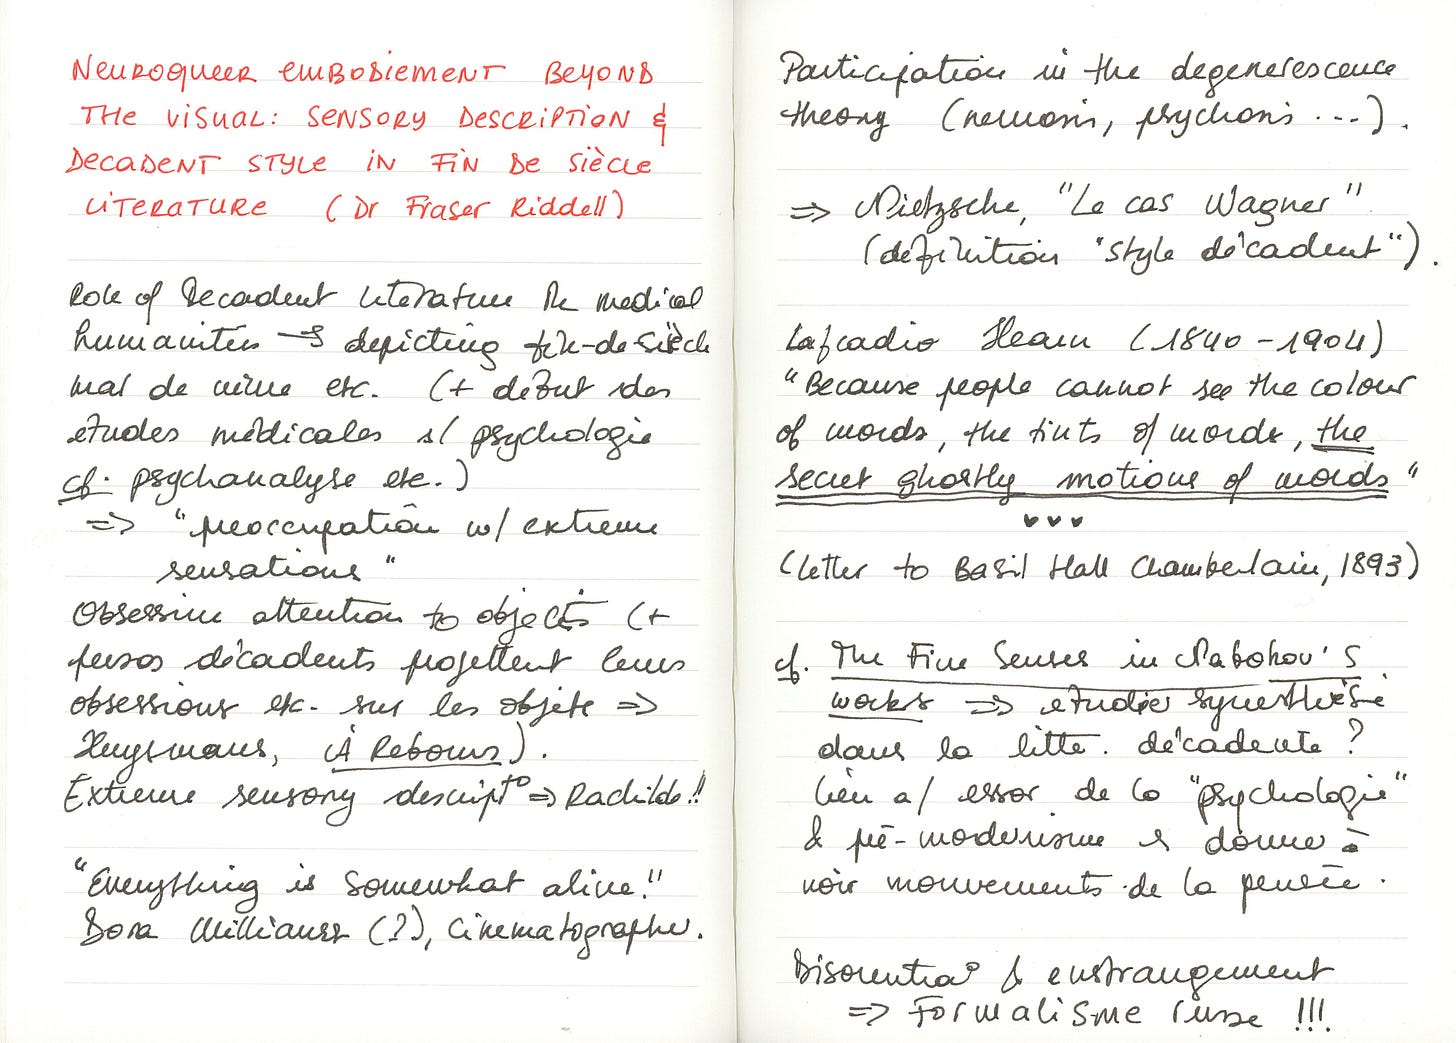 NEUROQUEER EMBODIEMENT BEYOND
THE VISUAL: SENSORY DESCRIPTION &
DECADENT STYLE IN FIN DE SIÈCLE
LITERATURE (Dr Fraser Riddell)
Role of Decadent Literature in medical
humanities → depicting fin-de-siècle
mal de vivre etc. (+ début des
études médicales s/ psychologie
cf. psychanalyse etc.)
=> "preoccupation w/ extreme
sensations"
Obsessive attention to objects (+
persos décadents projettent leurs
obsessions etc. sur les objets =>
Huysmans, À Rebours).
Extreme sensory descript° => Rachilde!!
"Everything is somewhat alive!"
Dora Williams (?), Cinematographer.
Participation in the degenerescence
theory (neurosis, psychosis ...).
=> Nietzsche, "Le cas Wagner"
(définition "style décadent").
Lafcadio Hearn (1840-1904)
"Because people cannot see the colour
of words, the tints of words, the
secret ghostly motions of words"
(letter to Basil Hall Chamberlain, 1893)
cf. The Five Senses in Nabokov's
works => étudier synesthésie
dans la litté. décadente ?
lien a/ essor de la "psychologie"
& pré-modernisme donne à
voir mouvements de la pensée.
Disorientia° & enstrangement
=> Formalisme russe !!!